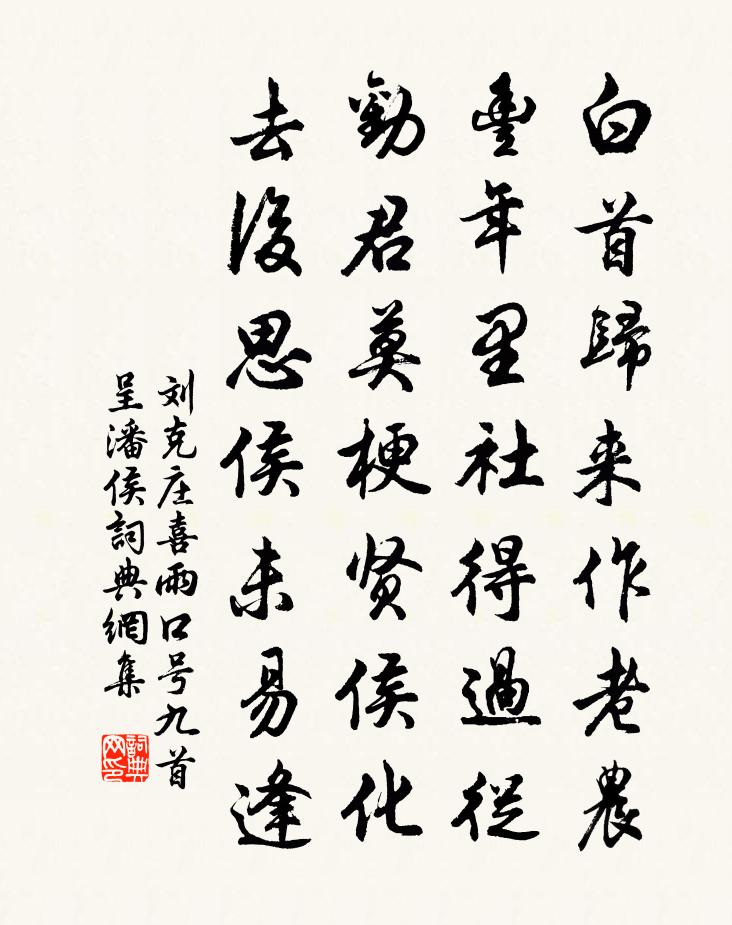 白首歸来作老農
豊年里社得過從
勸君莫梗贤侯化
去後思侯未易逢
刘克庄喜雨口号九首
呈潘侯詞典網集
詞典网印